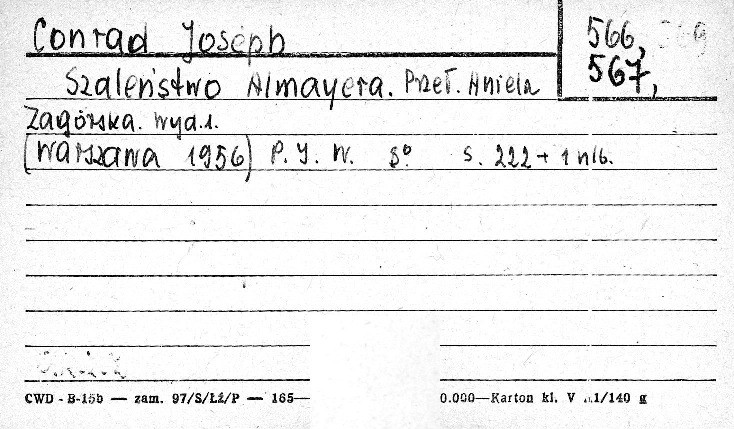 Conrad Joseph
566,
567,
Szaleństwo Almayera. Przeł. Aniela
Zagórska. Wyd. 1.
(Warszawa 1956) P. I. W. 8° s. 222 + 1 nlb.
CWD - B-15b — zam. 97/S/Łż/P — 165— 0.000—Karton kl. V .1/140 g